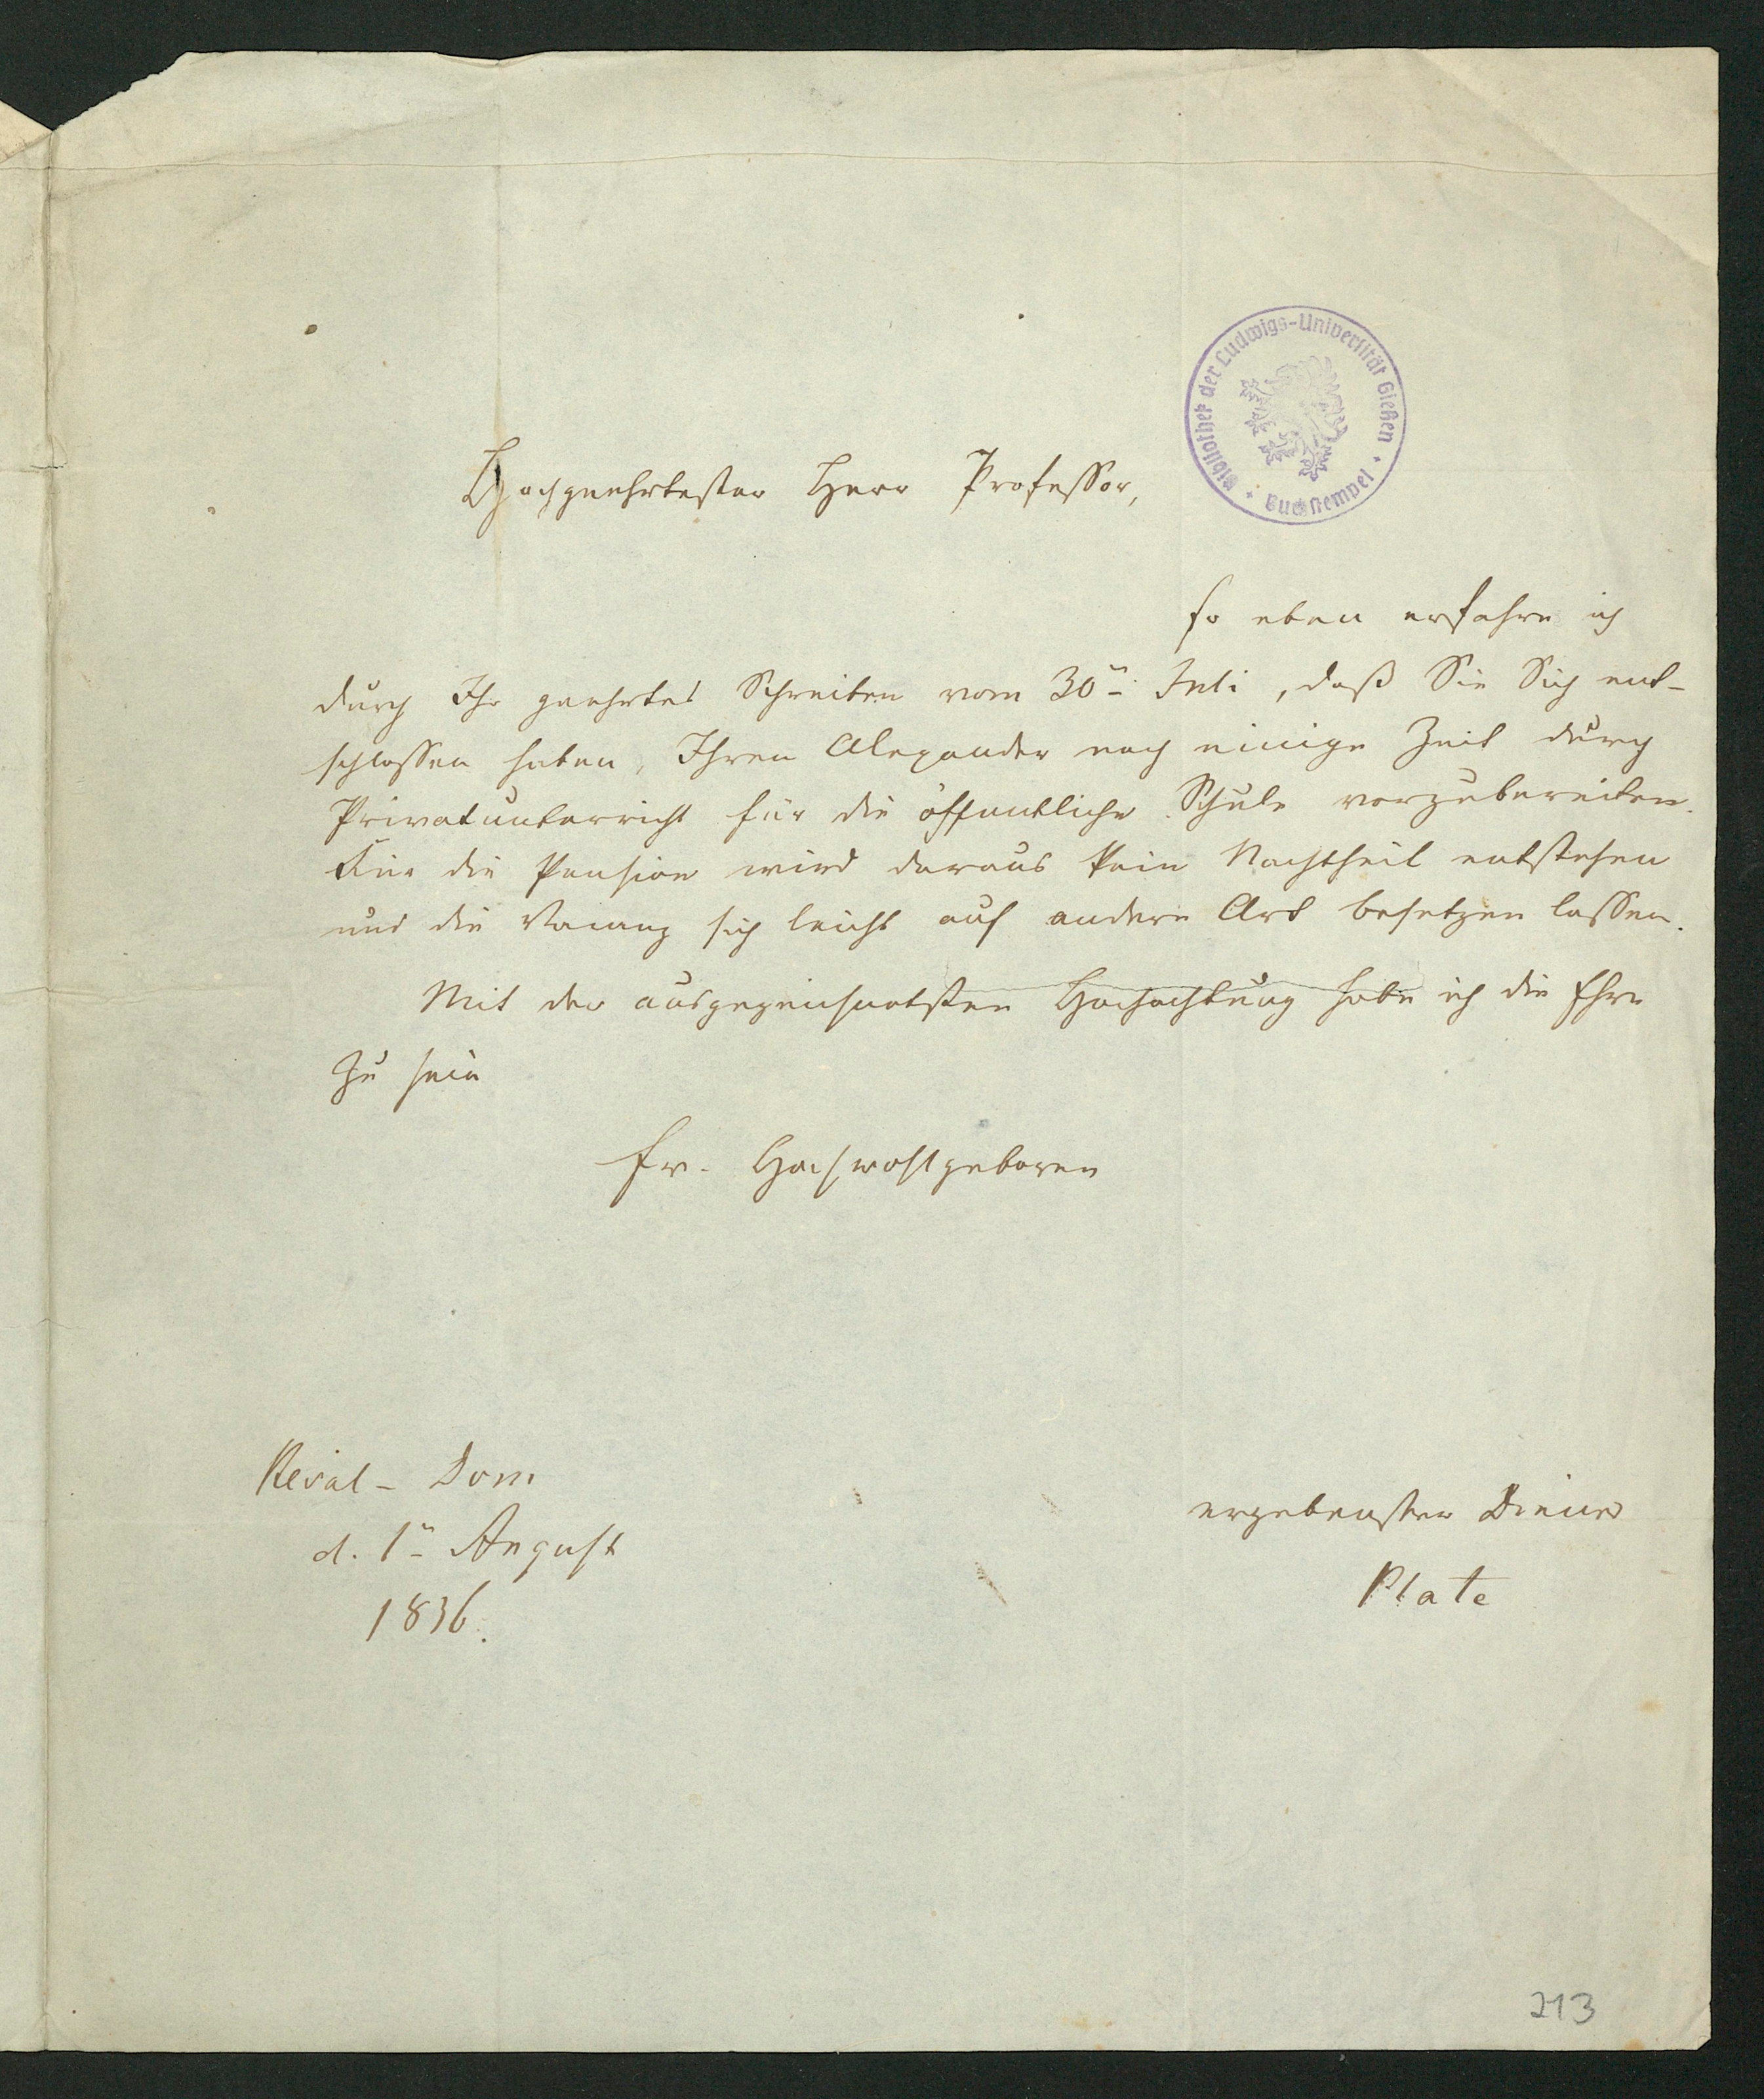 Bibliothek der Ludwigs-Universität Gießen
Buchstempel
Hochgeehrtester Herr Professor,
so eben erfahre ich
durch Ihr geehrtes Schreiben vom 30n Juli, daß Sie Sich ent-
schlossen haben, Ihren Alexander noch einige Zeit durch
Privatunterricht für die öffentliche Schule vorzubereiten.
Für die Pension wird daraus kein Nachtheil entstehen
und die Vacanz sich leicht auf andere Art besetzen lassen.
Mit der ausgezeichnetsten Hochachtung habe ich die Ehre
zu sein
Ew. Hochwohlgeboren
Reval- Dom
d. 1n August
1836.
ergebenster Diener
Plate
213